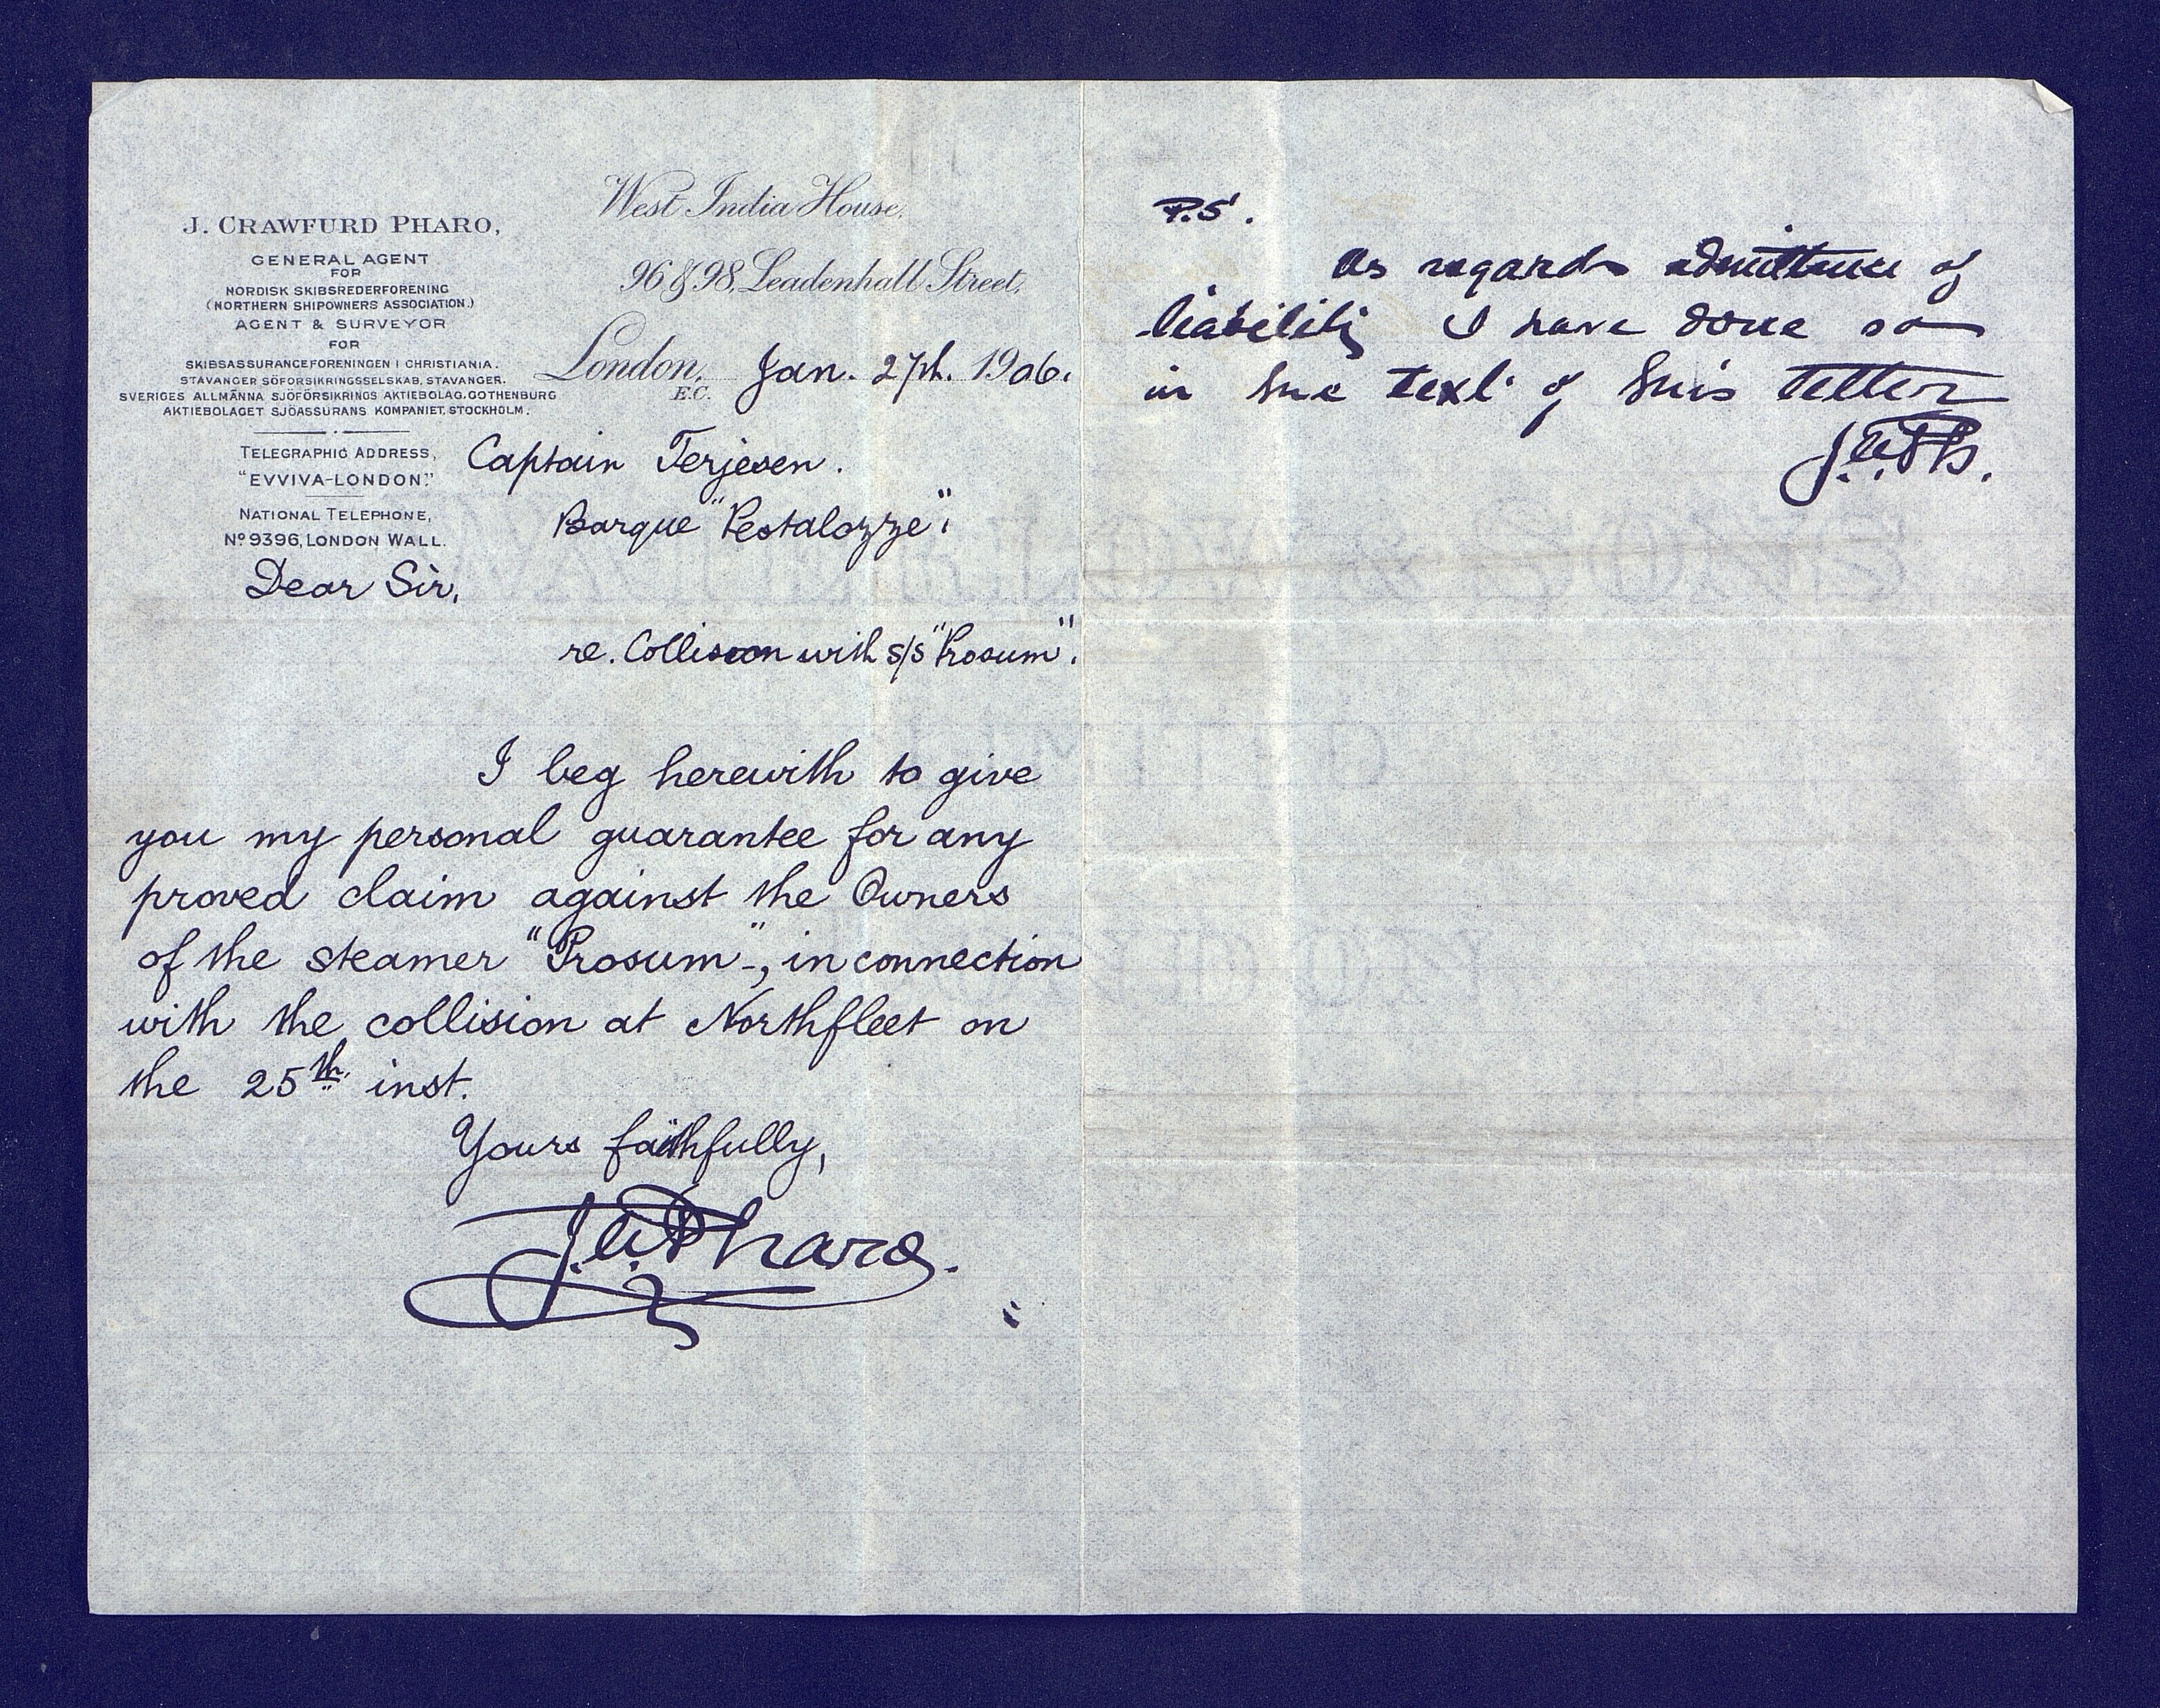 J. CRAWFURD PHARO,
GENERAL AGENT
FOR
NORDISK SKIBSREDERFORENING
(NORTHERN SHIPOWNERS ASSOCIATION.)
AGENT & SURVEYOR
FOR
SKIBSASSURANCEFORENINGEN I CHRISTIANIA.
STAVANGER SÖFORSIKRINGSSELSKAB, STAVANGER.
SVERIGES ALLMÄNNA SJÖFÖRSIKRINGS AKTIEBOLAG, GOTHENBURG
AKTIEBOLAGET SJÖASSURANS KOMPANIET, STOCKHOLM.
TELEGRAPHIC ADDRESS,
"EVVIVA-LONDON."
NATIONAL TELEPHONE,
No 9396, LONDON WALL.
West India House,
96 & 98, Leadenhall Street,
London, Jan. 27th. 1906.
E.C.
Captain Terjesen.
Barque "Pestalozze".
Dear Sir,
re. Collision with s/s "Prosum".
I beg herewith to give
you my personal guarantee for any
proved claim against the Owners
of the steamer "Prosum", in connection
with the collision at Northfleet on
the 25th inst.
Yours faithfully,
J.C. Pharo.
P.S.
As regards admittance of
liability I have done so
in the text of this letter
J.C.Ph.